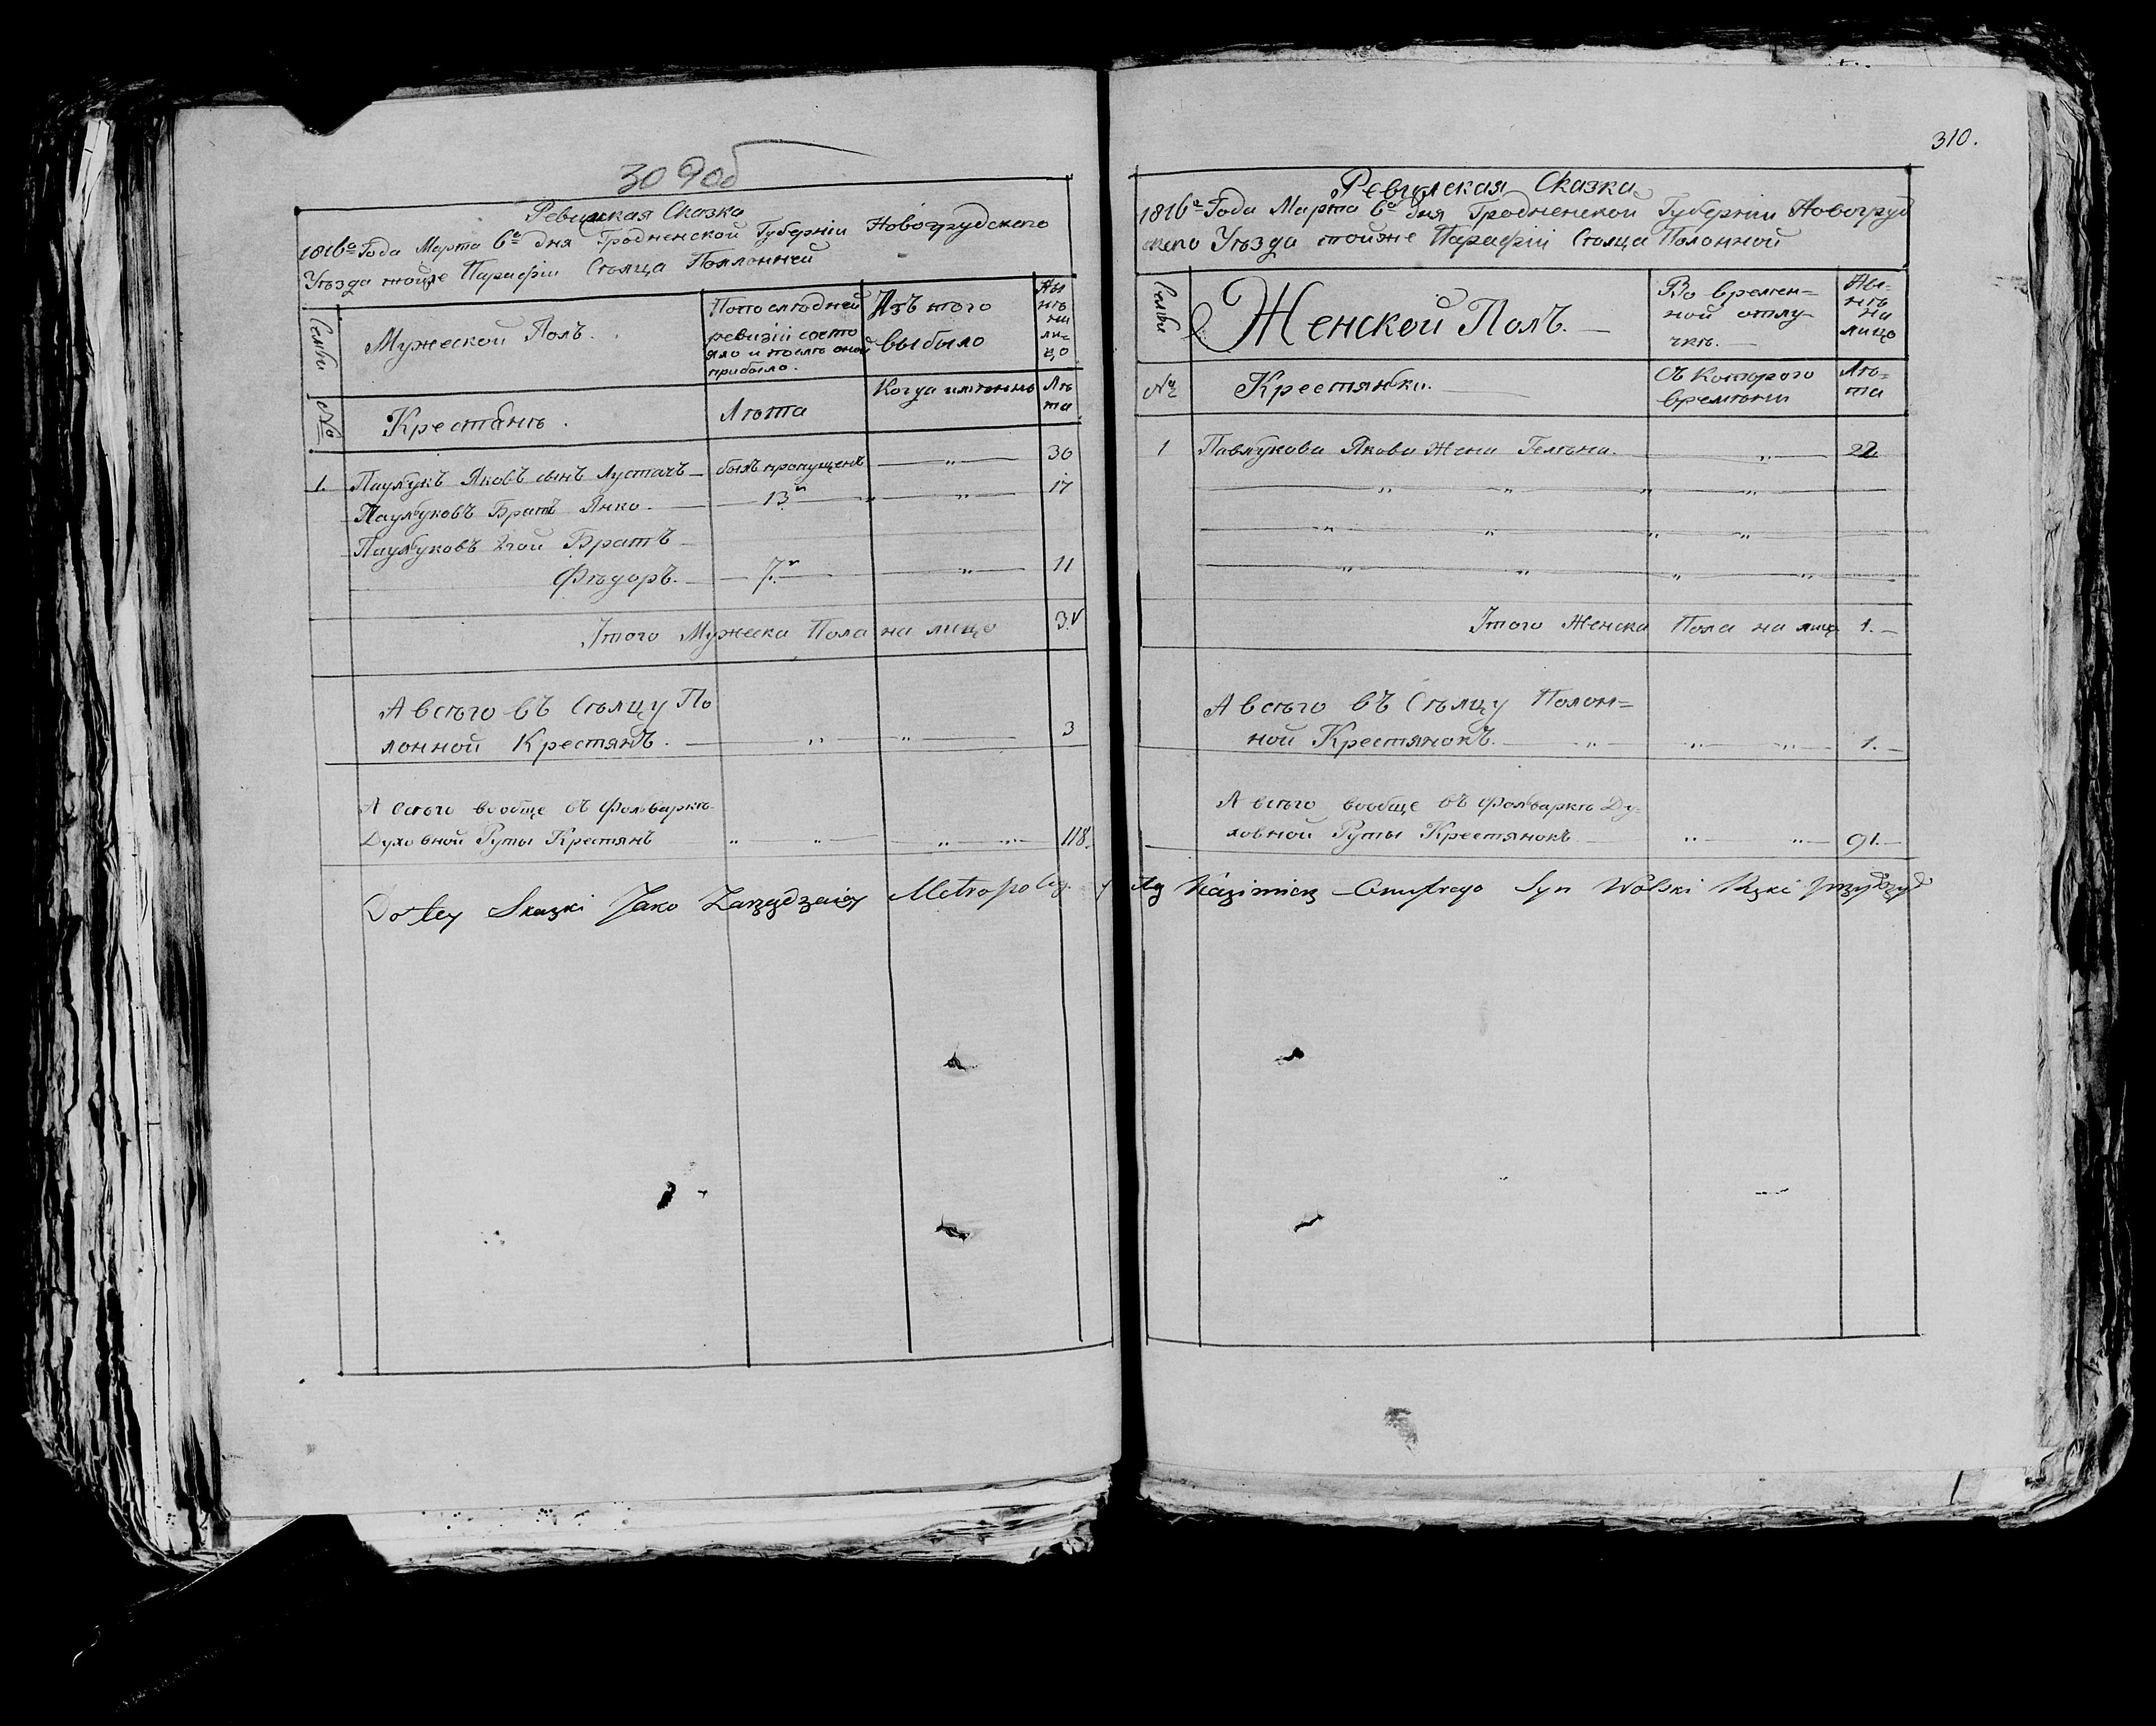 309об
Ревизская Сказка
1816го Года Марта 6го дня Гродненской Губерніи Новогрудского
Уѣзда тойже Парафіи Сѣлца Полонней
Семьи
Мужеской Полъ.
Попослѣдней
ревизіи состо
яло и послѣ оной
прибыло.
Изъ того
выбыло
Ны
нѣ
на
ли=
цо
№
Крестянѣ.
Лѣта
Когда имѣнно
Лѣ
та
1. Паулюкъ Яковъ сынъ — былъ пропущенъ — „ — 30
Паулюковъ Братъ Янко. — 13 — „ — 17
Паулюковъ 2гой Братъ —
Фѣдоръ. — 7 — „ — 11
Итого Мужеска Пола на лицо 3.
А всѣго въ Сѣлцу По
лонной Крестянъ. — „ — „ — 3
А всѣго вообще въ Фольваркѣ
Духовной Руты Крестянъ „ „ — „ — „ — 118.
310.
Ревизская Сказка
1816го Года Марта 6го дня Гродненской Губерніи Новогруд
скаго Уѣзда тойже Парафіи Сѣлца Полонной
Семьи
Женской Полъ. —
Во времен=
ной отлу
чкѣ. —
Ны=
нѣ
на
лицо
№
Крестянки. —
Съ Которого
времѣни
Лѣ=
та
1 Павлукова Якова Жена — „ — 22.
Итого Женска Пола на лицо 1. —
А всѣго въ Сѣлцу Полон=
ной Крестянокъ. — „ „ — „ — 1. —
А всѣго вообще въ Фольваркѣ Ду=
ховной Руты Крестянокъ „ — „ — 91. —
Do tey Skazki Jako Zarządzaięcy Kazimierz Onufrego Syn Wolski Rękę